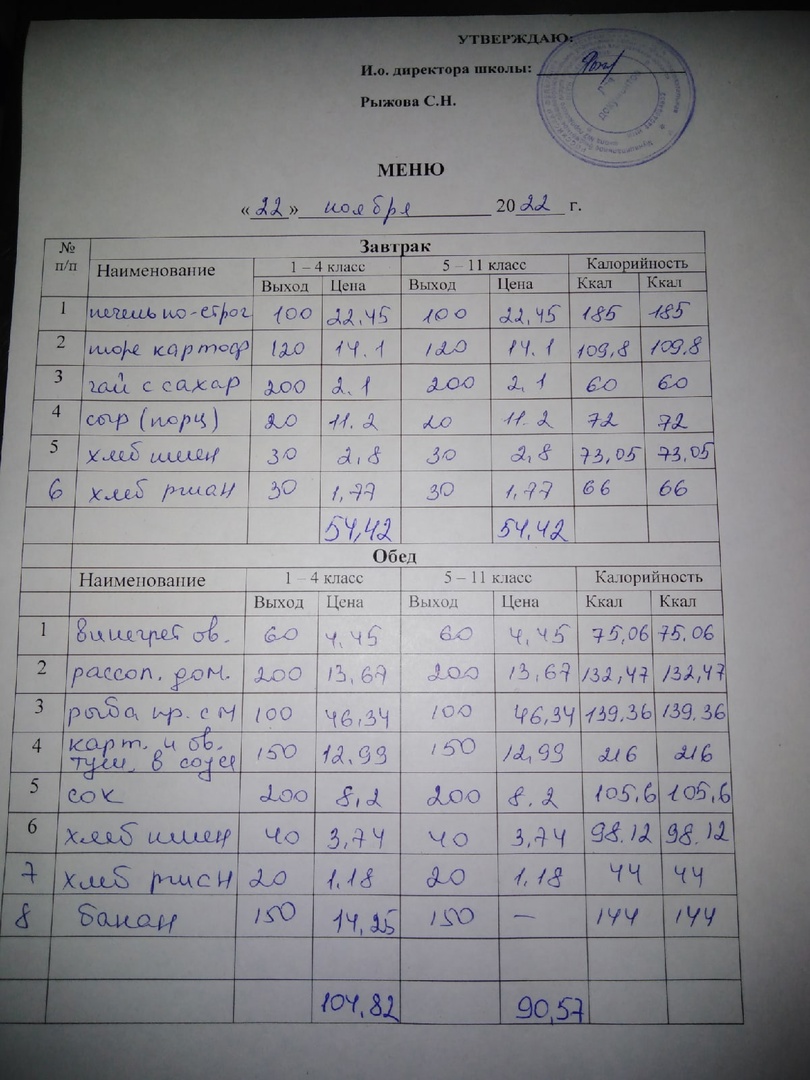 УТВЕРЖДАЮ:
И.о. директора школы:
Рыжова С.Н.
МЕНЮ
« 22 » ноября 2022 г.
№ п/п Завтрак
Наименование 1 – 4 класс 5 – 11 класс Калорийность
Выход Цена Выход Цена Ккал Ккал
1 печень по-строг 100 22,45 100 22,45 185 185
2 пюре картоф 120 14.1 120 14.1 109,8 109,8
3 чай с сахар 200 2.1 200 2,1 60 60
4 сыр (порц) 20 11.2 20 11.2 72 72
5 хлеб пшен 30 2,8 30 2,8 73,05 73,05
6 хлеб ржан 30 1,77 30 1,77 66 66
54,42 54,42
Обед
Наименование 1 – 4 класс 5 – 11 класс Калорийность
Выход Цена Выход Цена Ккал Ккал
1 винегрет ов. 60 4,45 60 4,45 75,06 75,06
2 рассол. дом. 200 13,67 200 13,67 132,47 132,47
3 рыба пр. с м 100 46,34 100 46,34 139,36 139,36
4 карт. и ов. туш. в соусе 150 12,99 150 12,99 216 216
5 сок 200 8,2 200 8.2 105,6 105,6
6 хлеб пшен 40 3,74 40 3,74 98.12 98.12
7 хлеб ржан 20 1,18 20 1,18 44 44
8 банан 150 14,25 150 — 144 144
104,82 90,57